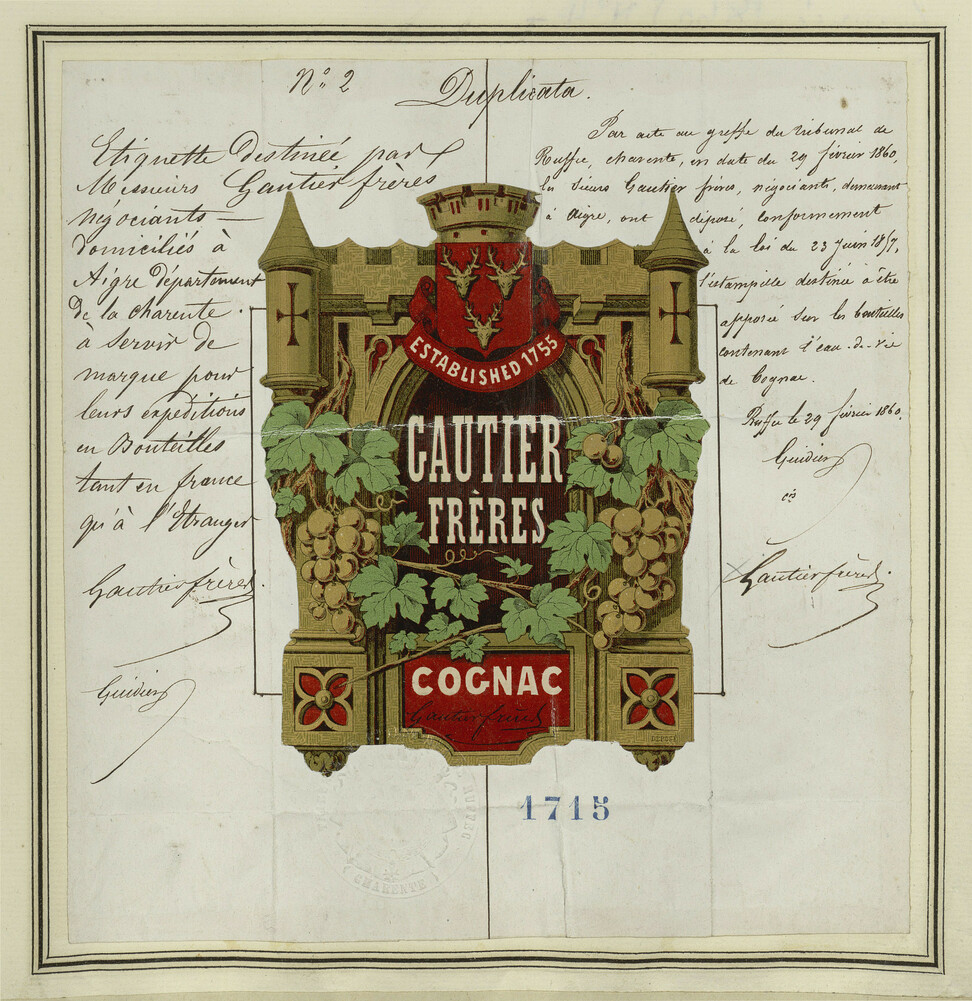 N° 2
Duplicata.
Etiquette Destinée par
Messieurs Gautier frères
négociants —
domiciliés à
Aigre Département
De la charente.
à servir de
marque pour
leurs expeditions
en Bouteilles
tant en france
qu'à l'Etranger
Gautier frères.
Guidier
Par acte au greffe du tribunal de
Ruffec, charente, en date du 29 février 1860,
les Sieurs Gautier frères, négociants, demeurant
à Aigre, ont déposé, conformement
à la loi du 23 Juin 1857,
l'estampille destinée à être
apposée sur les bouteilles
contenant l'eau-de-vie
de Cognac.
Ruffec le 29 février 1860.
Guidier
Gautier frères
ESTABLISHED 1755
GAUTIER
FRÈRES
COGNAC
Gautier frères
DÉPOSÉ
1715
CHARENTE